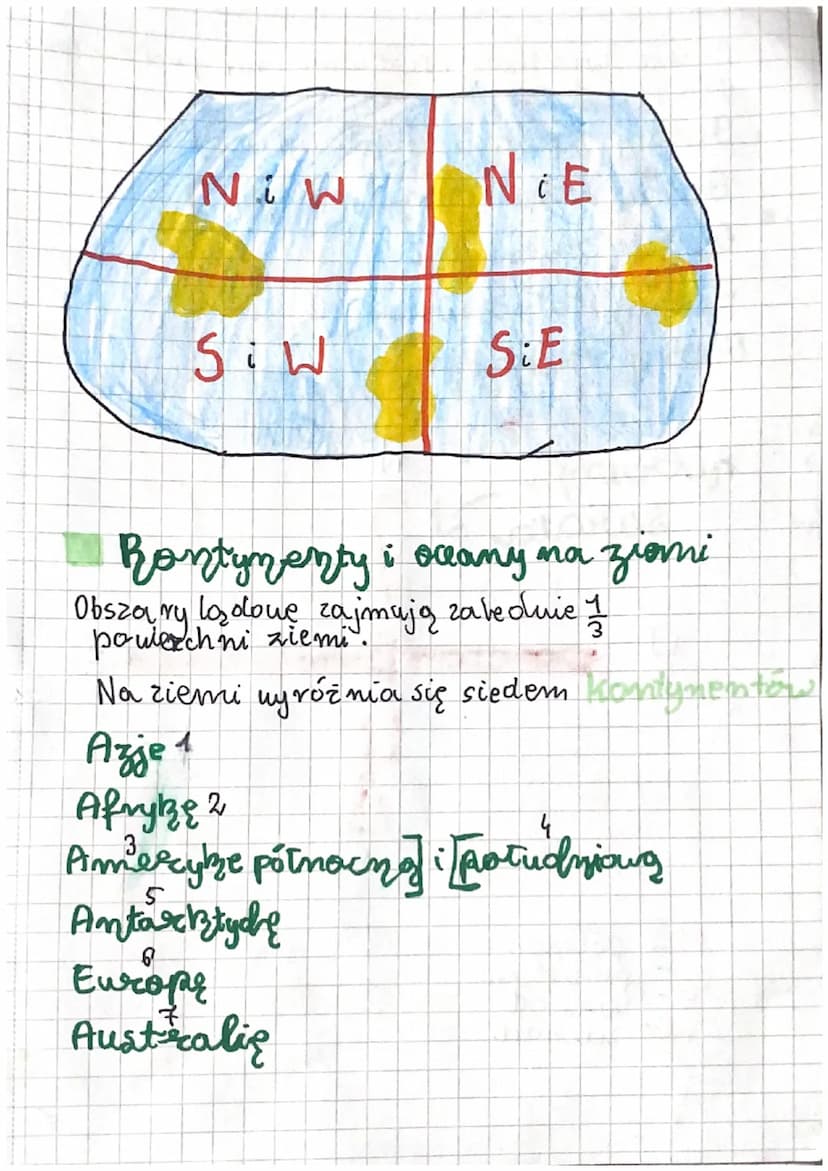 N i W
N i E
S i W
S i E
Kontynenty i oceany na ziemi
Obszary lądowe zajmują zaledwie 1/3
powierzchni ziemi.
Na ziemi wyróżnia się siedem kontynentów
Azje 1
Afrykę 2
3 4
Amerykę północną] i [południową
5
Antarktydę
6
Europę
7
Australię